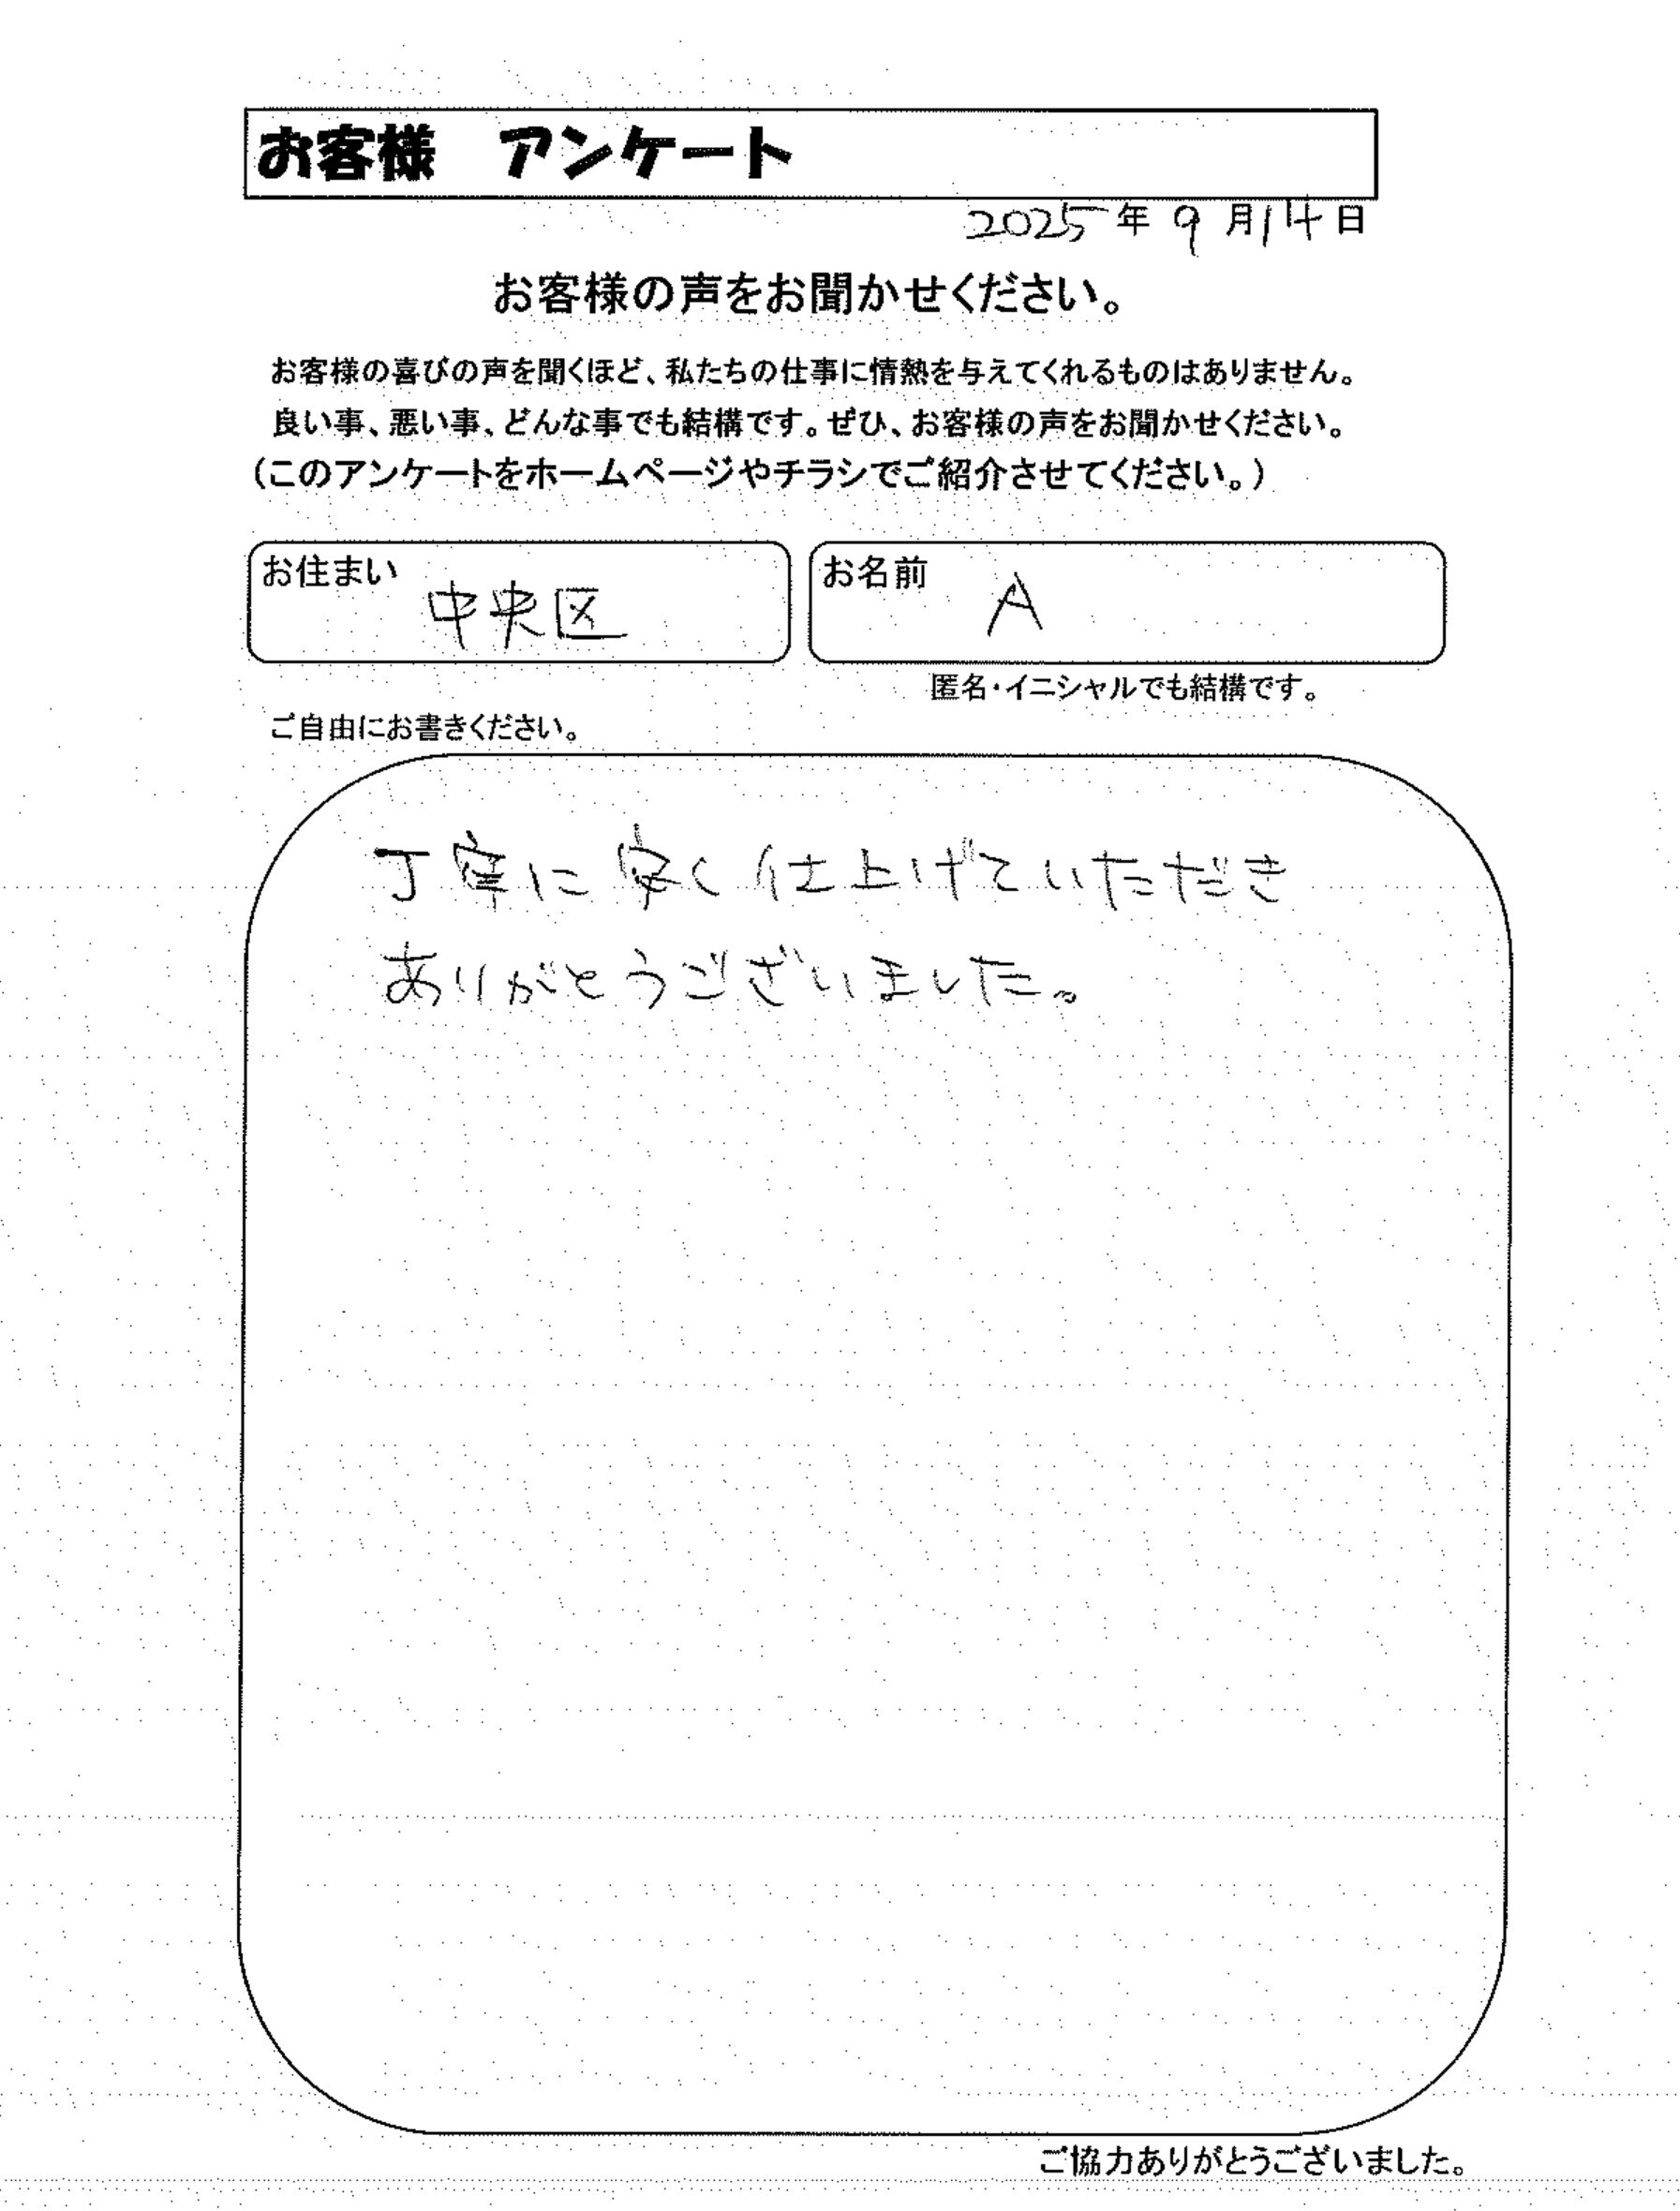 お客様　アンケート
2025年9月14日
お客様の声をお聞かせください。
お客様の喜びの声を聞くほど、私たちの仕事に情熱を与えてくれるものはありません。
良い事、悪い事、どんな事でも結構です。ぜひ、お客様の声をお聞かせください。
（このアンケートをホームページやチラシでご紹介させてください。）
お住まい 中央区
お名前 A
匿名・イニシャルでも結構です。
ご自由にお書きください。
丁寧に安く仕上げていただき
ありがとうございました。
ご協力ありがとうございました。